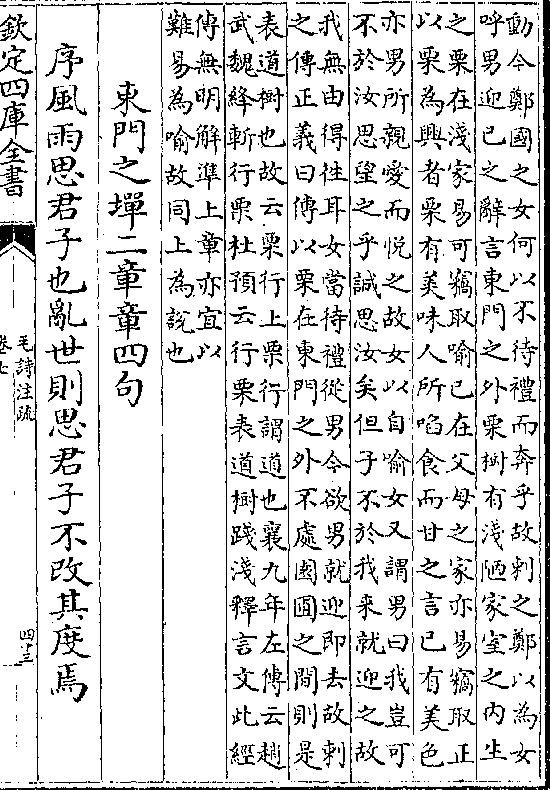 動今鄭國之女何以不待禮而奔乎故刺之鄭以為女
呼男迎已之辭言東門之外栗樹有淺陋家室之内生
之栗在淺家易可竊取喻已在父母之家亦易竊取正
以栗為興者栗有美味人所㗖食而甘之言已有美色
亦男所親愛而悦之故女以自喻女又謂男曰我豈可
不於汝思望之乎誠思汝矣但子不於我來就迎之故
我無由得往耳女當待禮從男今欲男就迎即去故刺
之傳正義曰傳以栗在東門之外不處園圃之間則是
表道樹也故云栗行上栗行謂道也襄九年左傳云趙
武魏絳斬行栗杜預云行栗表道樹踐淺釋言文此經
傳無明解準上章亦宜以
難易為喻故同上為說也
東門之墠二章章四句
序風雨思君子也亂世則思君子不改其度焉
欽定四庫全書
毛詩注疏
卷七
四十三